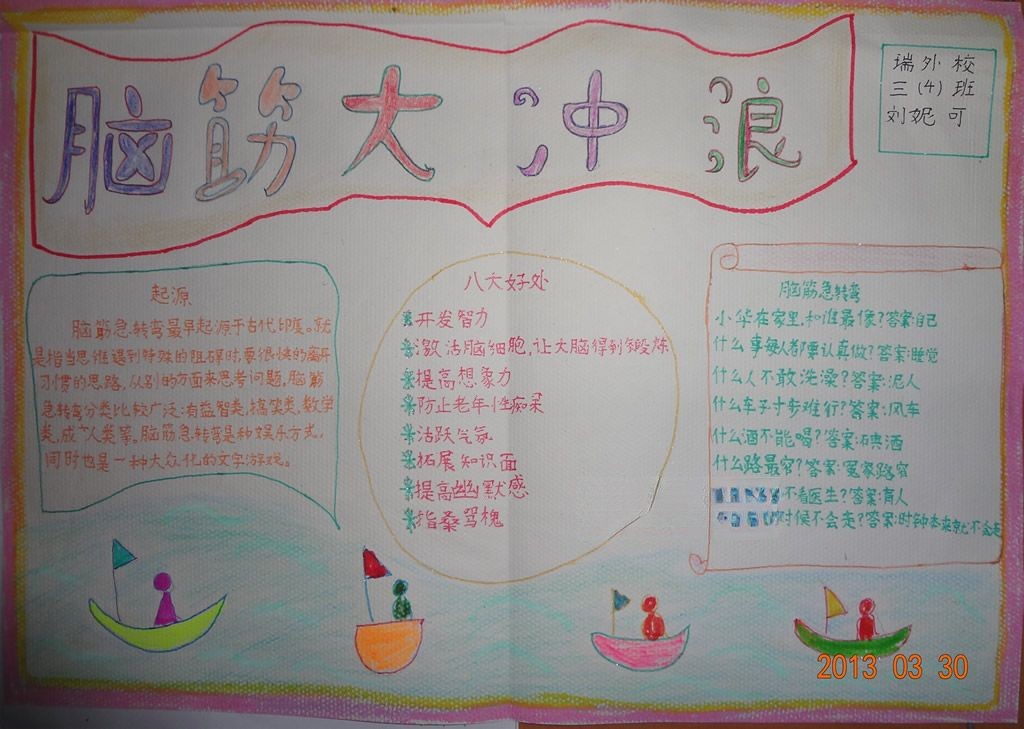 脑筋大冲浪
瑞外校
三(4)班
刘妮可
起源
脑筋急转弯最早起源于古代印度。就
是指当思维遇到特殊的阻碍时,要很快的离开
习惯的思路,从别的方面来思考问题,脑筋
急转弯分类比较广泛:有益智类,搞笑类,数学
类,成人类等。脑筋急转弯是种娱乐方式,
同时也是一种大众化的文字游戏。
八大好处
开发智力
激活脑细胞,让大脑得到锻炼
提高想象力
防止老年性痴呆
活跃气氛
拓展知识面
提高幽默感
指桑骂槐
脑筋急转弯
小华在家里,和谁最像?答案:自己
什么事每人都要认真做?答案:睡觉
什么人不敢洗澡?答案:泥人
什么车子寸步难行?答案:风车
什么酒不能喝?答案:碘酒
什么路最窄?答案:冤家路窄
不看医生?答案:盲人
时候不会走?答案:时钟本来就不会走
2013 03 30